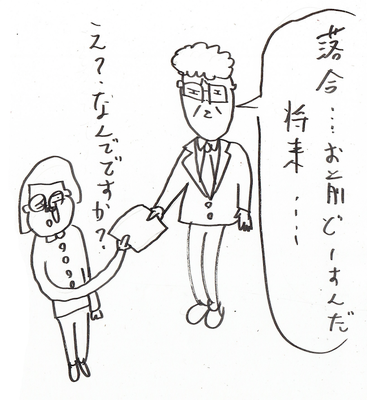 落合…お前どーすんだ
将来……
え？なんでですか？